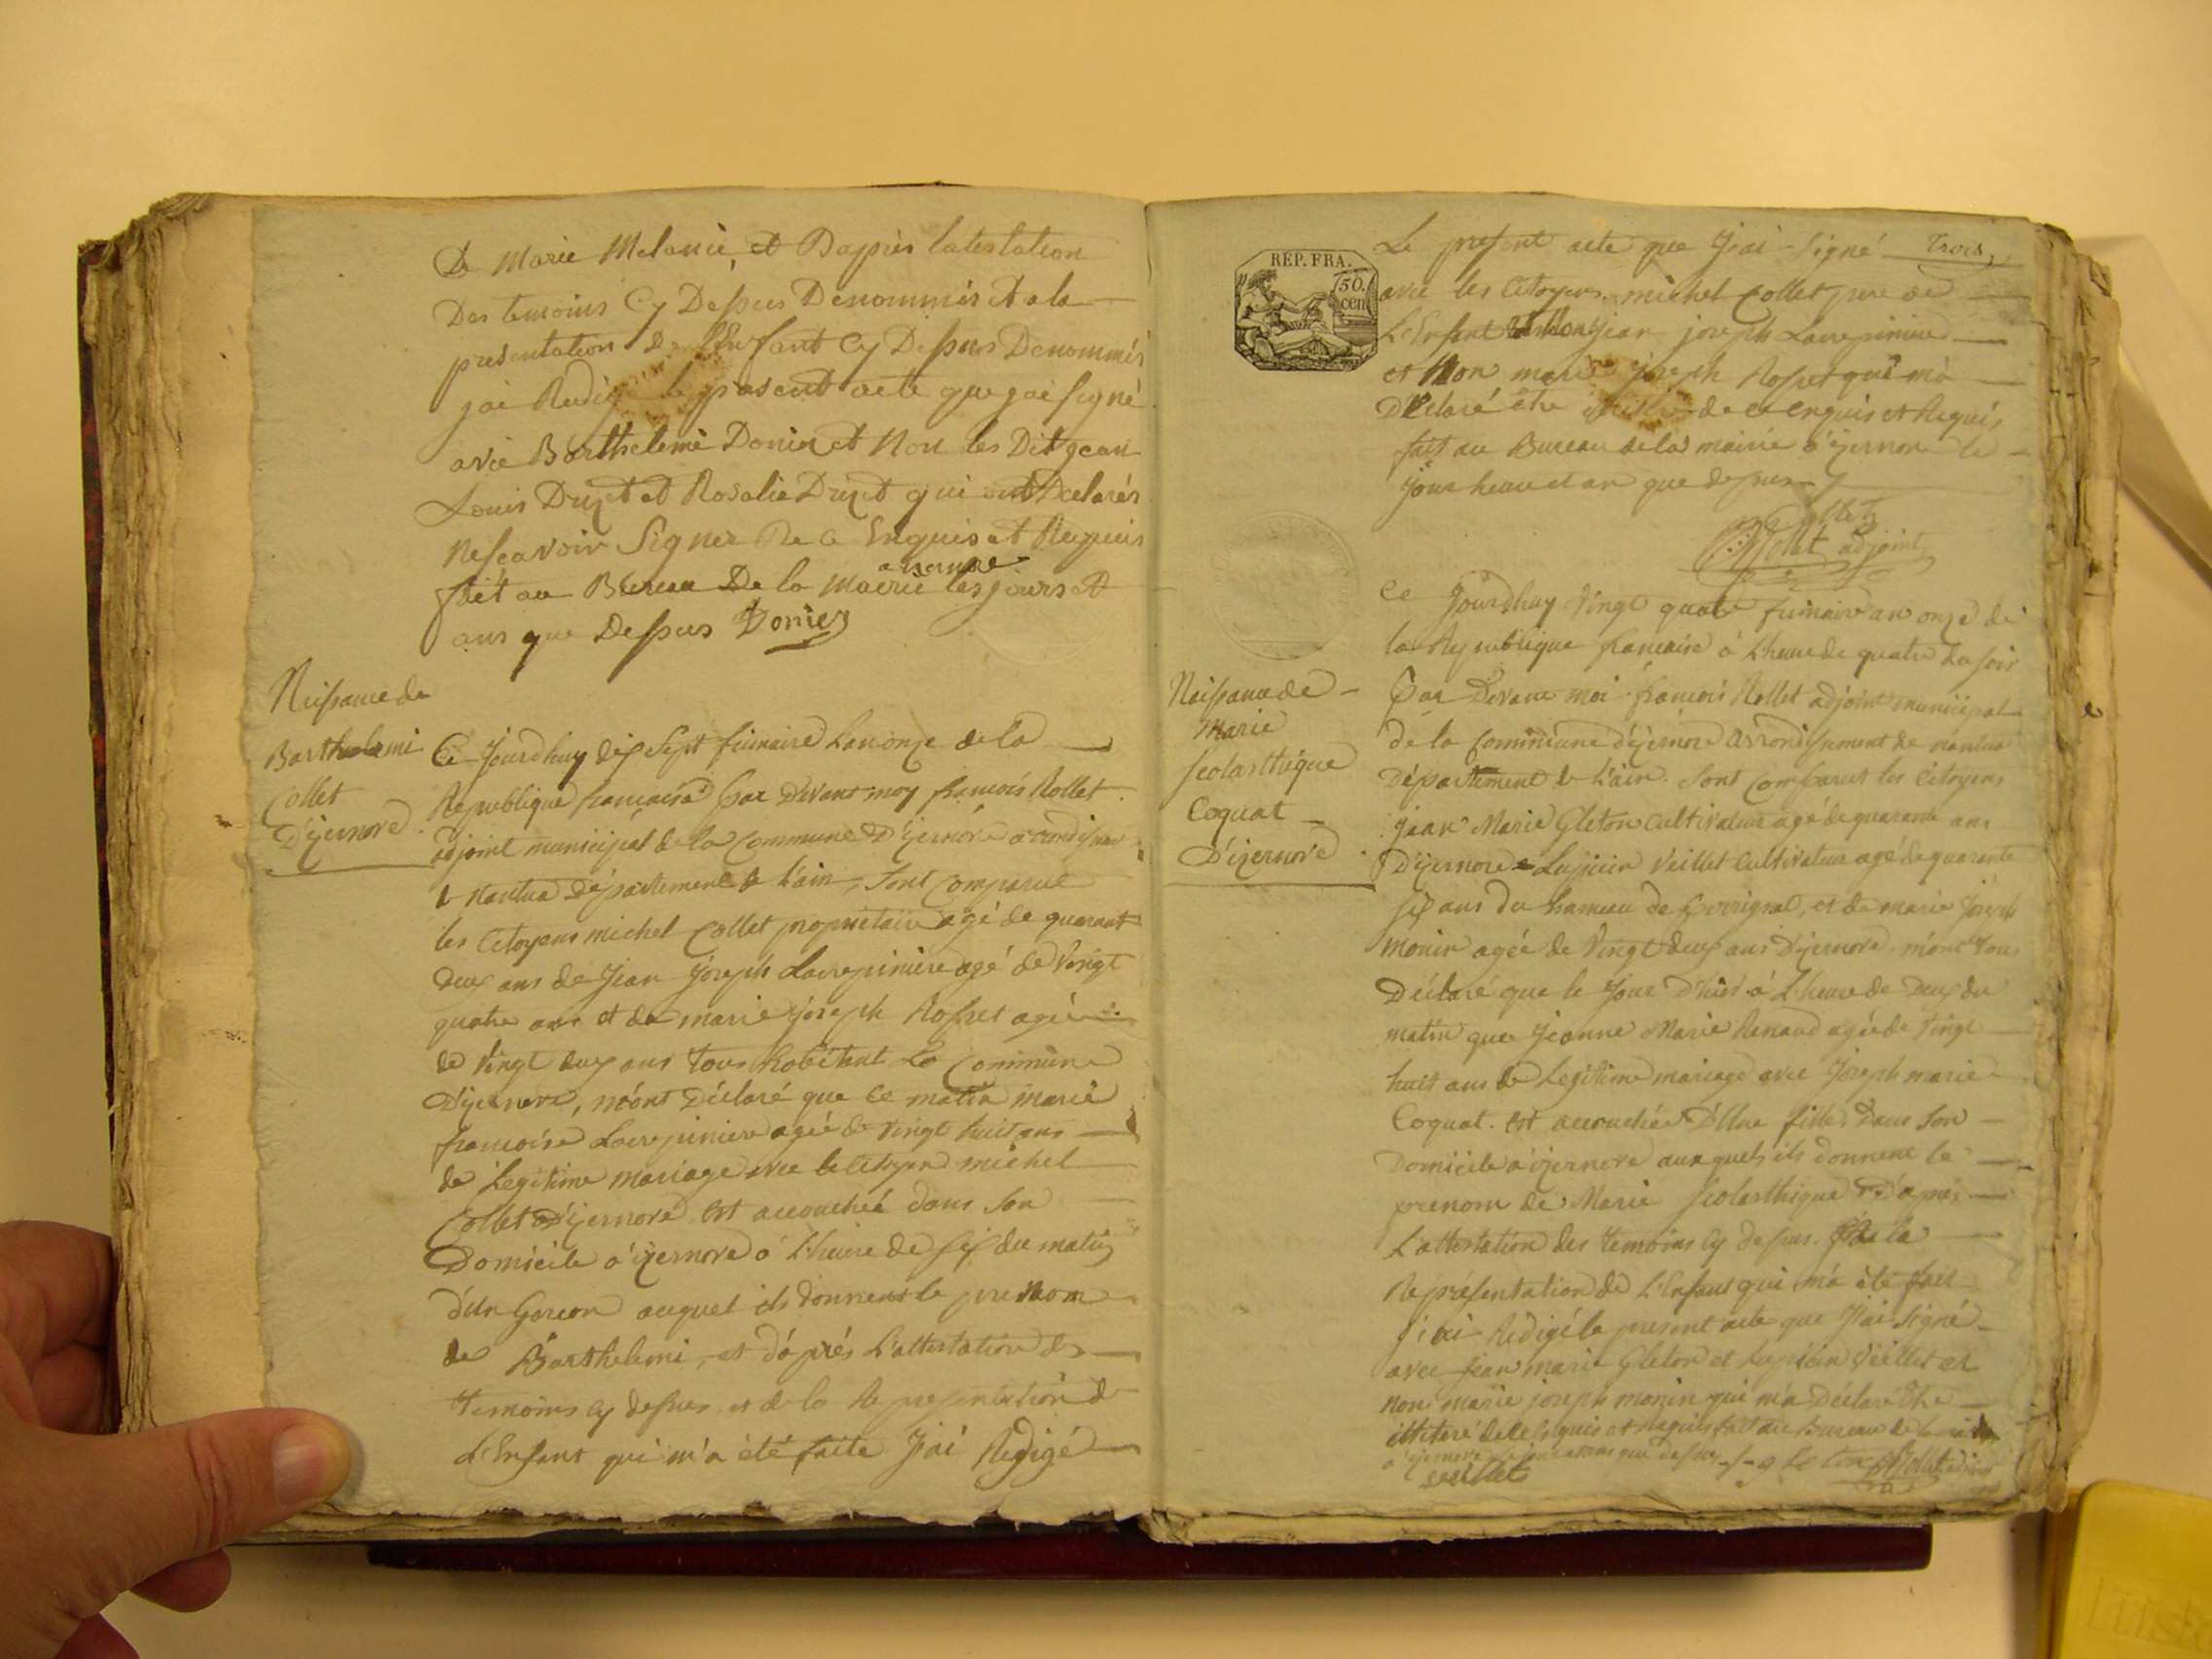 De Marie Melanie, et Dapriès latestation
Des temoins Cy Dessus Denommés et a la
presentation De l'Enfant Cy Dessus Denommés
jai Redigé le present acte que jai signé
avec Barthelemi Donier et Non les Dit jean
Louis Druet et Rosalie Druet qui ont Declarés
Nescavoir Signer De Ce Enquis et Requis
a izernore
fait au Bureau De la Mairie les jours et
ans que Dessus Donier
Naissance de
Barthelemi
Collet
D'izernore
Ce Jourdhuy dix Sept frimaire Lan onze de la
Republique francaise par Devant moy francois Rollet
adjoint municipal de la Commune D'izernore arrondissem
de Nantua Département de L'ain, Sont Comparut
les Citoyens michel Collet propriétaire agé de quarant
deux ans de Jean Joseph Lacrepiniere agé de Vingt
quatre ans et de marie Joseph Rosset agée
de Vingt deux ans tous habitant La Commune
D'izernore, m'ont Déclaré que Ce matin marie
francoise Lacrepiniere agée de Vingt huit ans
de Legitime mariage avec le Citoyen michel
Collet D'izernore est accouchée dans Son
Domicile a izernore a L'heure de six du matin
d'un Garcon auquel ils donnent le prenom
de Barthelemi, et d'aprés L'attestation des
temoins Cy dessus et de la Representation de
L'Enfant qui m'a été faite J'ai Redigé
RÉP. FRA.
50.
cen
Le present acte que J'ai Signé
Trois,
avec les Citoyens michel Collet pere de
L'Enfant jean joseph Lacrepiniere
et Non marie Joseph Rosset qui m'a
Déclaré être de ce enquis et Requis
fait au Bureau de la mairie a izernore le
Jour heure et an que dessus
Collet
Rollet adjoint
Ce Jourdhuy Vingt quatre frimaire an onze de
la Republique francaise à L'heure de quatre du soir
Naissance de
Marie
scolasthique
Coquat
D'izernore
Par Devant moi francois Rollet adjoint municipal
de la Commune d'izernore Arrondissement de nantua
Département de L'ain. Sont Comparut les Citoyens
Jean Marie Gleton Cultivateur agé de quarante ans
D'izernore Lupicin Veillet Cultivateur agé de quarante
six ans du hameau de perrignat, et de marie Joseph
monin agée de Vingt deux ans D'izernore. m'ont tous
Déclaré que le Jour D'hier à L'heure de Deux du
matin que Jeanne Marie Renaud agée de Vingt
huit ans de Legitime mariage avec Joseph marie
Coquat. est accouchée D'Une fille Dans Son
Domicile a izernore auquels ils donnent le
prenom de Marie scolasthique D'aprés
L'attestation des temoins Cy dessus. de la
Représentation de L'Enfant qui m'a été fait
J'ai Redigé le present acte que J'ai Signé
avec jean marie Gleton et Lupicin Veillet et
non marie joseph monin qui m'a Déclaré Etre
illiteré de Ce Enquis et Requis fait au Bureau de la
a izernore que dessus Rollet adjoint
veillet